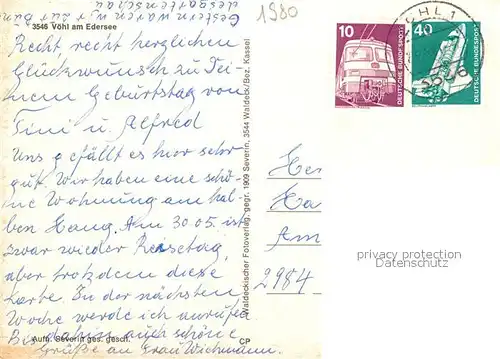 1980
3546 Vöhl am Edersee
Recht, recht herzlichen
Glückwunsch zu Dei-
nem Geburtstag von
Tini u. Alfred
Uns gefällt es hier sehr
gut. Wir haben eine schö-
ne Wohnung am hal-
ben Hang. Am 30.05. ist
zwar wieder Reisetag,
aber trotzdem diese
Karte. In der nächsten
Woche werde ich anrufen
Bis dahin auch schöne
Grüße an Frau Wichmann.
Aufn. Severin ges. gesch.
CP
Waldeckischer Fotoverlag, gegr. 1909 Severin, 3544 Waldeck/Bez. Kassel
10
DEUTSCHE BUNDESPOST
40
DEUTSCHE BUNDESPOST
VÖHL 1
3546
Her
Ha
Am
2984
privacy protection
Datenschutz